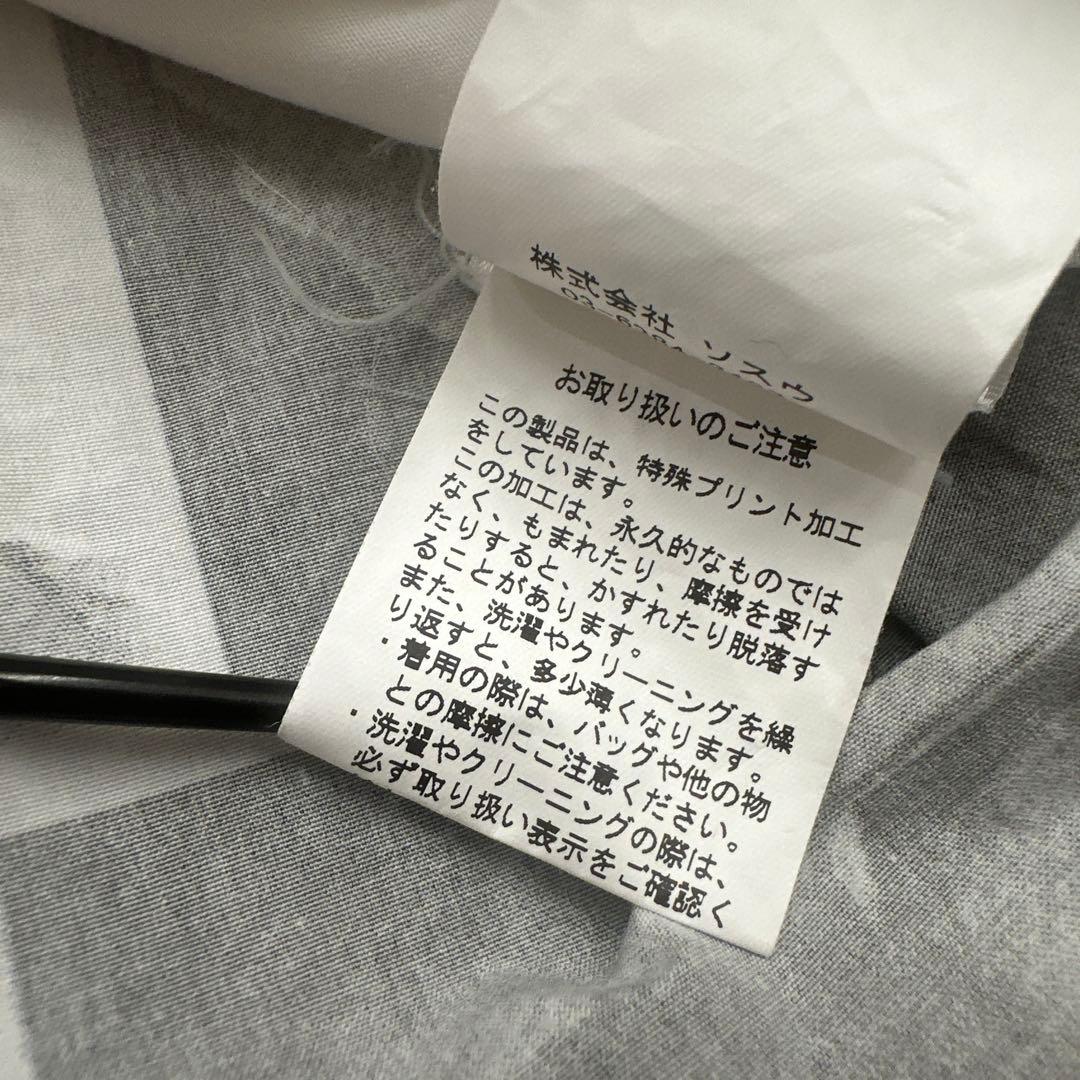 株式会社 ソスウ
お取り扱いのご注意
この製品は、特殊プリント加工
をしています。
この加工は、永久的なものでは
なく、もまれたり、摩擦を受け
たりすると、かすれたり脱落す
ることがあります。
また、洗濯やクリーニングを繰
り返すと、多少薄くなります。
・着用の際は、バッグや他の物
との摩擦にご注意ください。
・洗濯やクリーニングの際は、
必ず取り扱い表示をご確認く